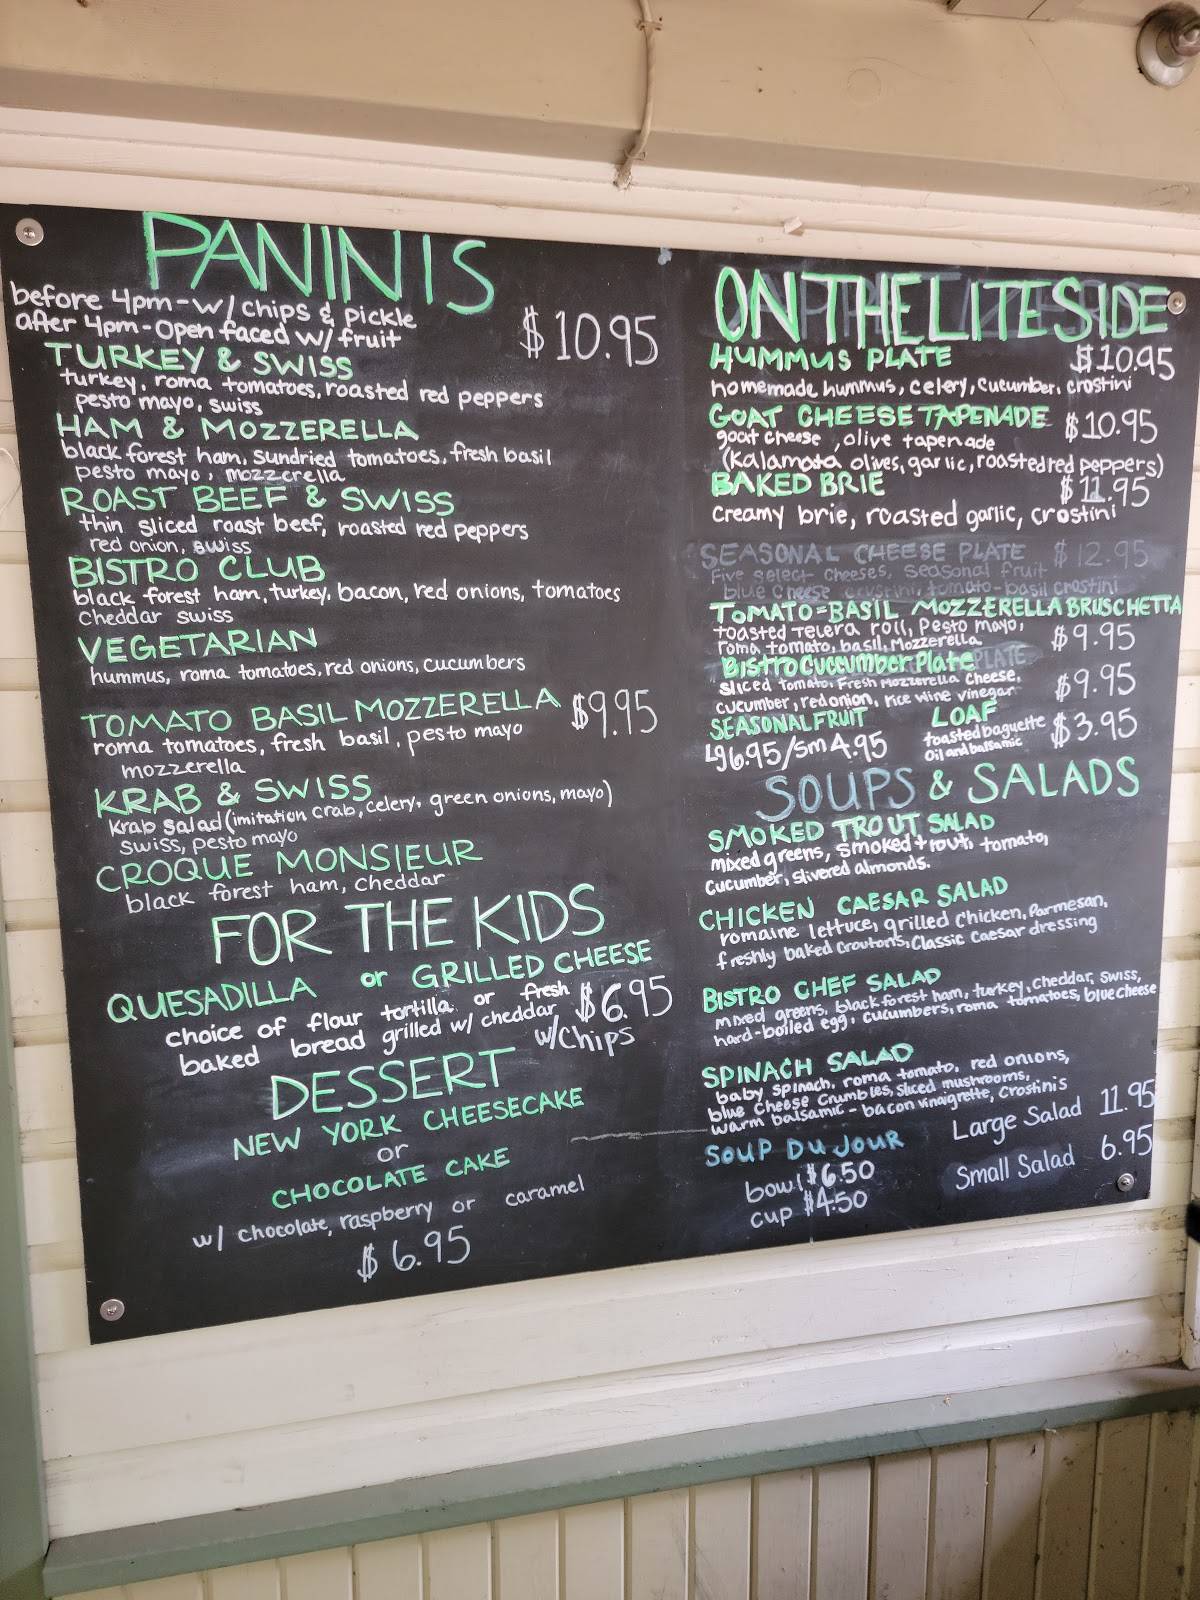 PANINIS
before 4pm-w/ chips & pickle
after 4pm-Open faced w/ fruit
$10.95
TURKEY & SWISS
turkey, roma tomatoes, roasted red peppers
pesto mayo, swiss
HAM & MOZZERELLA
black forest ham, sundried tomatoes, fresh basil
pesto mayo, mozzerella
ROAST BEEF & SWISS
thin sliced roast beef, roasted red peppers
red onion, swiss
BISTRO CLUB
black forest ham, turkey, bacon, red onions, tomatoes
cheddar swiss
VEGETARIAN
hummus, roma tomatoes, red onions, cucumbers
TOMATO BASIL MOZZERELLA $9.95
roma tomatoes, fresh basil, pesto mayo
mozzerella
KRAB & SWISS
Krab Salad (imitation crab, celery, green onions, mayo)
swiss, pesto mayo
CROQUE MONSIEUR
black forest ham, cheddar
FOR THE KIDS
QUESADILLA or GRILLED CHEESE
choice of flour tortilla or fresh $6.95
baked bread grilled w/ cheddar w/chips
DESSERT
NEW YORK CHEESECAKE
or
CHOCOLATE CAKE
w/ chocolate, raspberry or caramel
$6.95
ON THE LITE SIDE
HUMMUS PLATE $10.95
homemade hummus, celery, cucumber, crostini
GOAT CHEESE TAPENADE $10.95
goat cheese, olive tapenade
(Kalamata olives, garlic, roasted red peppers)
BAKED BRIE $11.95
creamy brie, roasted garlic, crostini
SEASONAL CHEESE PLATE $12.95
Five select cheeses, seasonal fruit
blue cheese crostini, tomato-basil crostini
TOMATO-BASIL MOZZERELLA BRUSCHETTA
toasted Telera roll, pesto mayo,
roma tomato, basil, Mozzerella $9.95
Bistro Cucumber Plate
sliced tomato, Fresh Mozzerella Cheese,
cucumber, red onion, rice wine vinegar $9.95
SEASONAL FRUIT
Lg 6.95/Sm 4.95
LOAF
toasted baguette $3.95
Oil and balsamic
SOUPS & SALADS
SMOKED TROUT SALAD
mixed greens, smoked trout, tomato,
cucumber, slivered almonds.
CHICKEN CAESAR SALAD
romaine lettuce, grilled chicken, Parmesan,
freshly baked croutons, Classic Caesar dressing
BISTRO CHEF SALAD
mixed greens, black forest ham, turkey, cheddar, swiss,
hard-boiled egg, cucumbers, roma tomatoes, blue cheese
SPINACH SALAD
baby spinach, roma tomato, red onions,
blue cheese crumbles, sliced mushrooms,
warm balsamic-bacon vinaigrette, crostinis
Large Salad 11.95
Small Salad 6.95
SOUP DU JOUR
bowl $6.50
cup $4.50